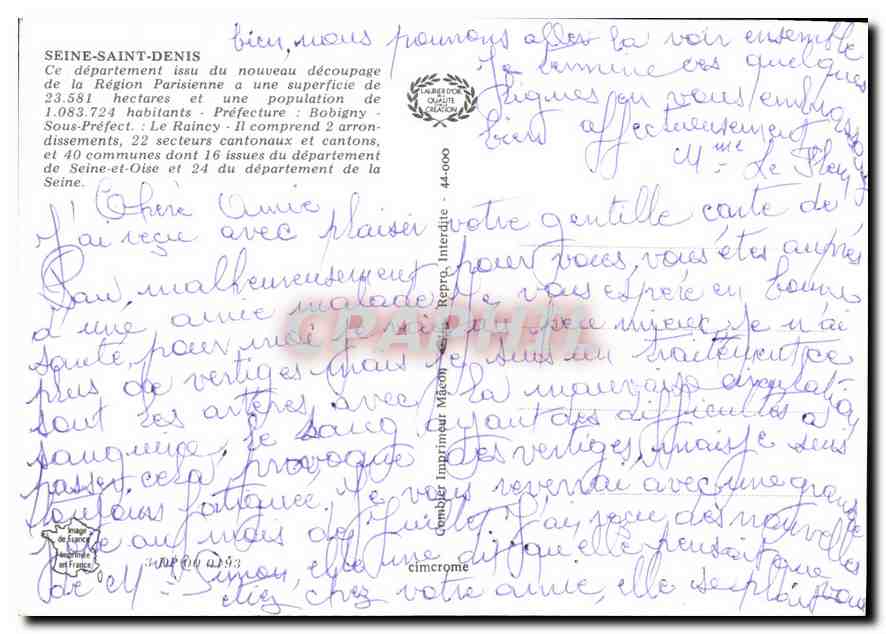 SEINE-SAINT-DENIS
Ce département issu du nouveau découpage
de la Région Parisienne a une superficie de
23.581 hectares et une population de
1.083.724 habitants - Préfecture : Bobigny -
Sous-Préfect. : Le Raincy - Il comprend 2 arron-
dissements, 22 secteurs cantonaux et cantons,
et 40 communes dont 16 issues du département
de Seine-et-Oise et 24 du département de la
Seine.
LAURIER D'OR
DE LA
QUALITÉ
CRÉATION
Chère Amie
J'ai reçu avec plaisir votre gentille carte de
Pau, malheureusement pour vous, vous êtes auprès
d'une amie malade. Je vous espère en bonne
santé, pour moi je vais un peu mieux, je n'ai
plus de vertiges mais je suis un traitement ce
sont les artères avec la mauvaise circulation
sanguine, le sang ayant des difficultés à
passer, cela provoque des vertiges, mais je suis
toujours fatiguée. Je vous reverrai avec une grande
joie au mois de Juillet. J'ai reçu des nouvelles
de Mme Simon, elle me dit qu'elle pensait que
chez votre amie, elle
bien, nous pourrons aller la voir ensemble
Je termine ces quelques
lignes en vous embrassant
bien affectueusement
Mme Le
Combier Imprimeur Mâcon Repro. Interdite - 44-000
CPAPHIL
Image
de France
Imprimée
en France
cimcrome